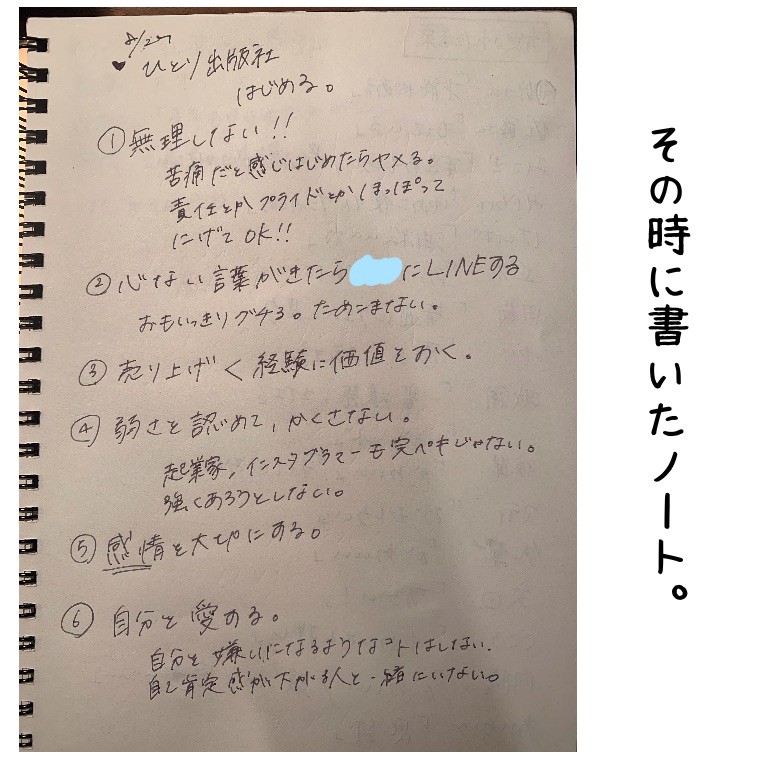 8/27
♥ ひとり出版社
はじめる。
① 無理しない!!
苦痛だと感じはじめたらヤメる。
責任とかプライドとかほっぽって
にげてOK!!
② 心ない言葉がきたら にLINEする
おもいっきりグチる。ためこまない。
③ 売り上げ<経験に価値をおく。
④ 弱さを認めて、かくさない。
起業家、インスタグラマーも完ペキじゃない。
強くあろうとしない。
⑤ 感情を大切にする。
⑥ 自分を愛する。
自分を嫌いになるようなコトはしない。
自己肯定感が下がる人と一緒にいない。
その時に書いたノート。